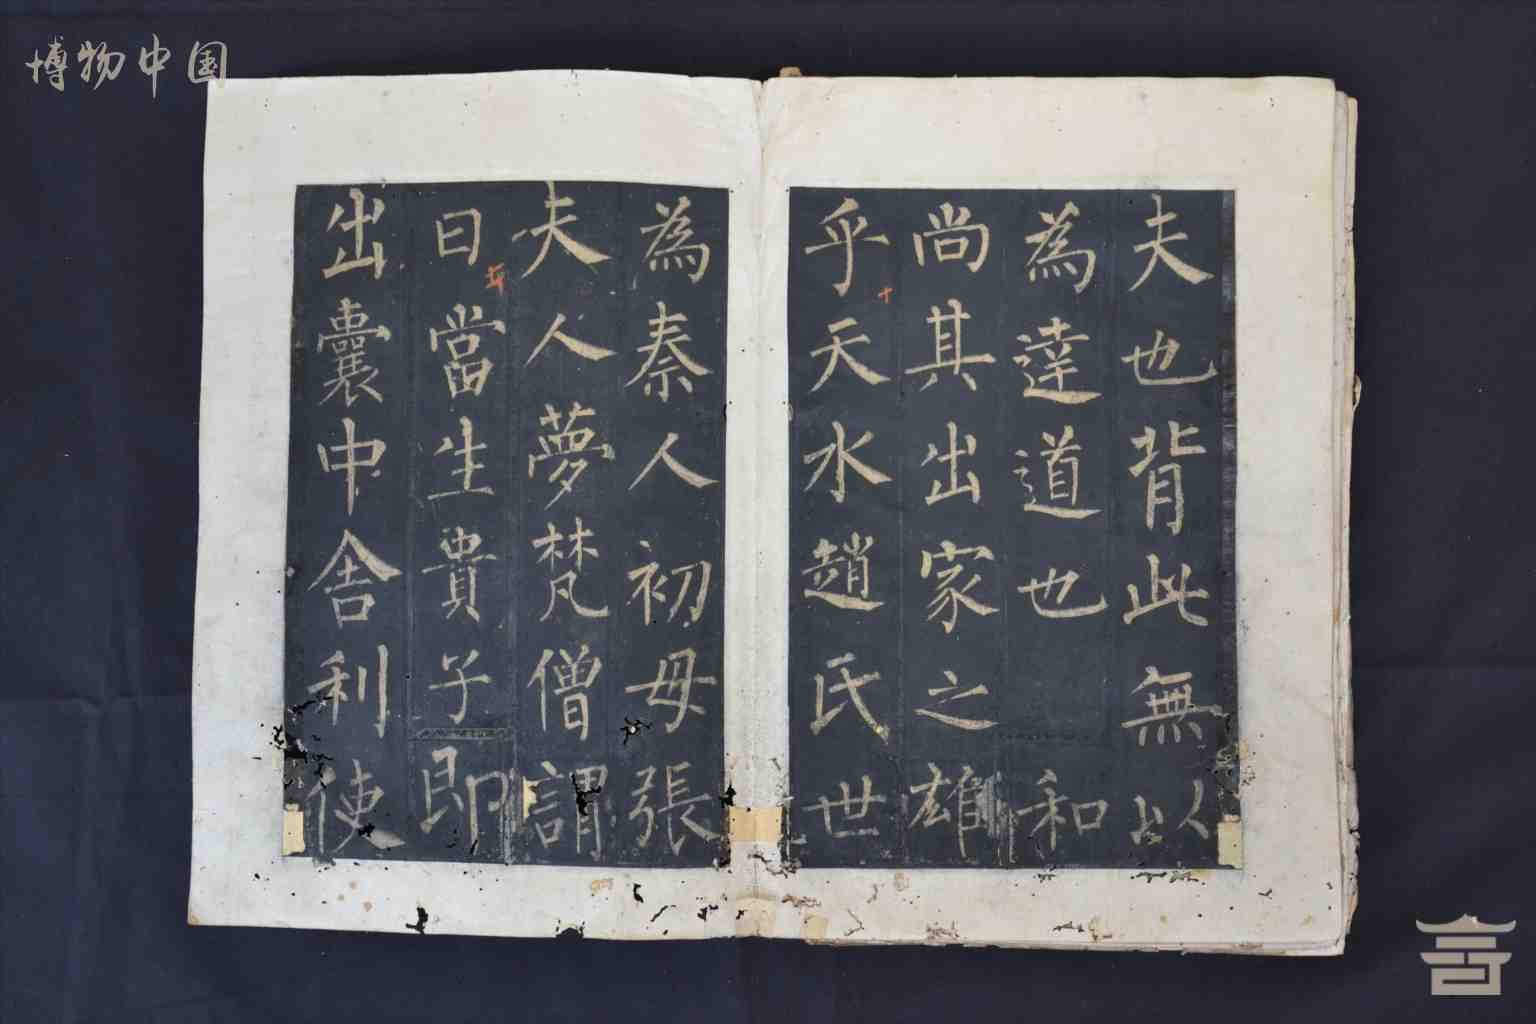 博物中国
夫也背此無以
為達道也和
尚其出家之雄
乎天水趙氏世
為秦人初母張
夫人夢梵僧謂
曰當生貴子即
出囊中舍利使